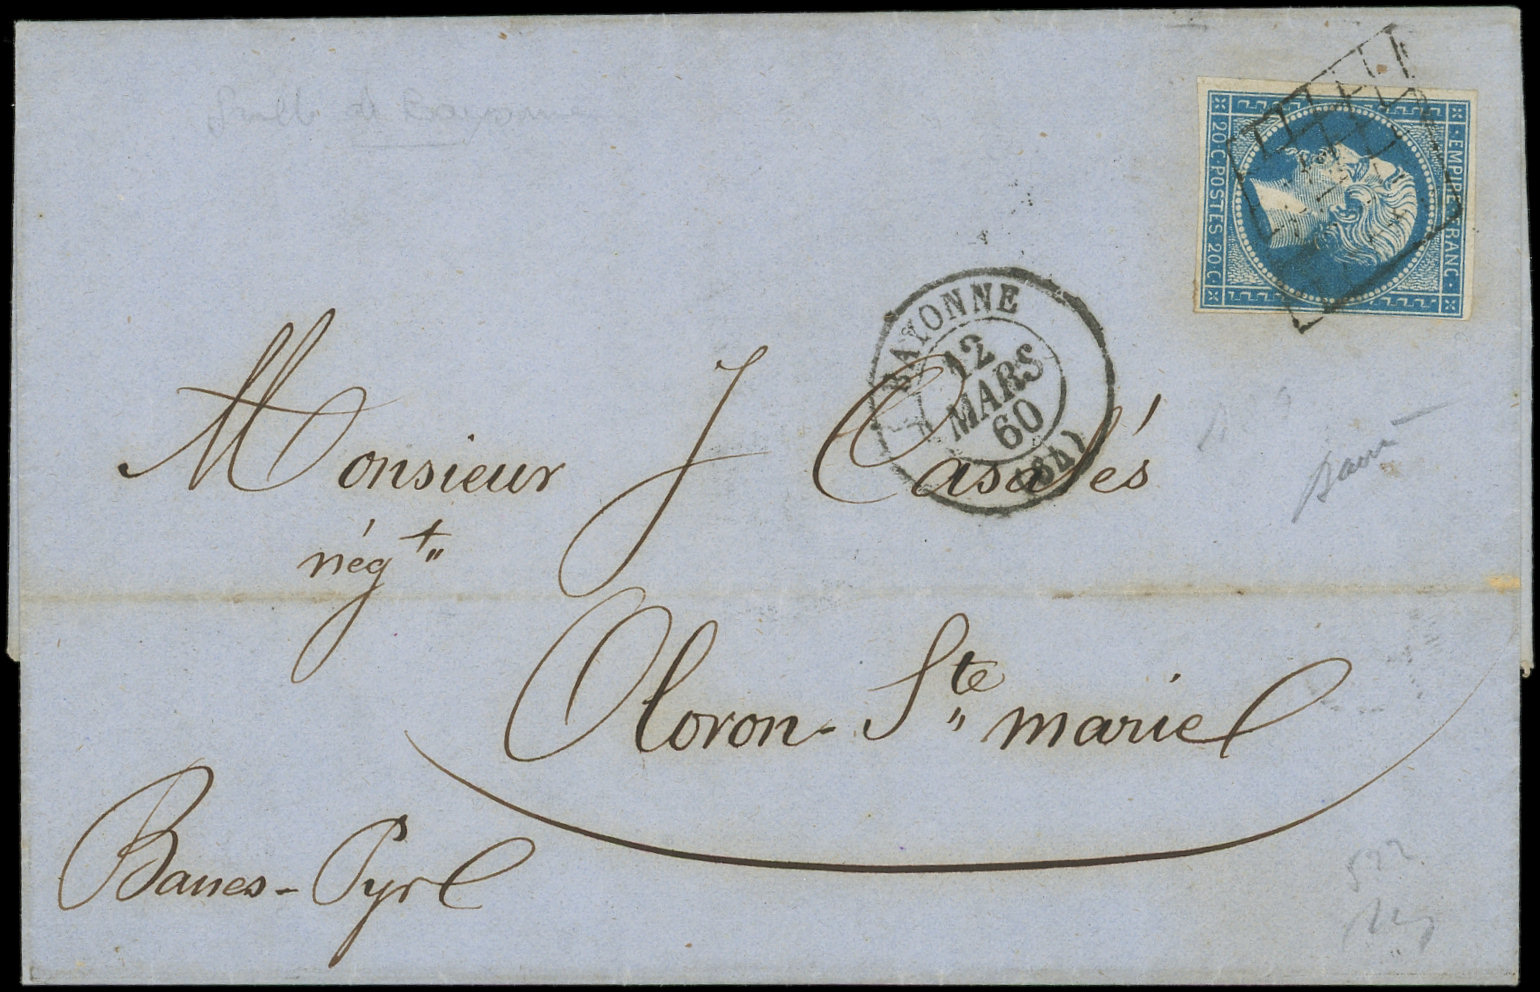 EMPIRE FRANC
20 C POSTES 20 C
BAYONNE
12
MARS
60
(64)
Monsieur J Casalés
nég.t
Oloron-Ste marie
Basses-Pyr
522